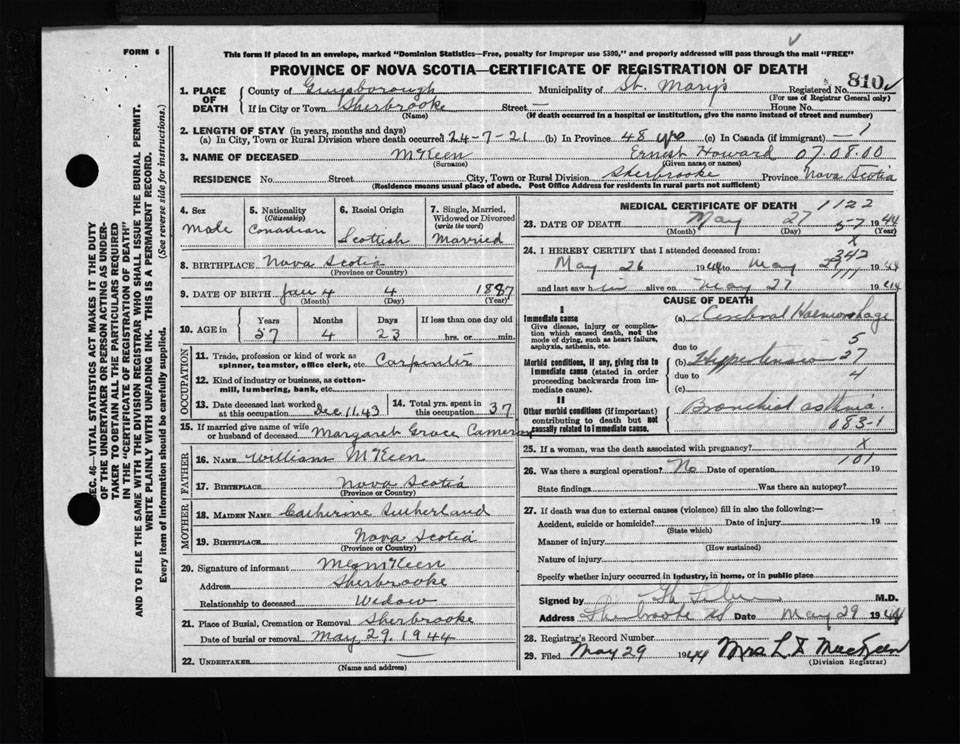 FORM 6
This form if placed in an envelope, marked "Dominion Statistics—Free, penalty for improper use $300," and properly addressed will pass through the mail "FREE"
PROVINCE OF NOVA SCOTIA—CERTIFICATE OF REGISTRATION OF DEATH
810
1. PLACE OF DEATH
County of Guysborough Municipality of St. Mary's Registered No.
(For use of Registrar General only)
If in City or Town Sherbrooke Street — House No.
(Name) (If death occurred in a hospital or institution, give the name instead of street and number)
2. LENGTH OF STAY (in years, months and days)
(a) In City, Town or Rural Division where death occurred 24-7-21 (b) In Province 48 yrs (c) In Canada (if immigrant) — 1
3. NAME OF DECEASED McKeen Ernest Howard 07.08.00
(Surname) (Given name or names)
RESIDENCE No. Street City, Town or Rural Division Sherbrooke Province Nova Scotia
(Residence means usual place of abode. Post Office Address for residents in rural parts not sufficient)
4. Sex
Male
5. Nationality
(Citizenship)
Canadian
6. Racial Origin
Scottish
7. Single, Married, Widowed or Divorced
(write the word)
Married
8. BIRTHPLACE Nova Scotia
(Province or Country)
9. DATE OF BIRTH Jan 4 4 1887
(Month) (Day) (Year)
10. AGE in
Years Months Days If less than one day old
57 4 23 hrs. or min.
OCCUPATION
11. Trade, profession or kind of work as spinner, teamster, office clerk, etc. Carpenter
12. Kind of industry or business, as cotton-mill, lumbering, bank, etc.
13. Date deceased last worked at this occupation Dec 11. 43
14. Total yrs. spent in this occupation 37
15. If married give name of wife or husband of deceased Margaret Grace Cameron
FATHER
16. NAME William McKeen
17. BIRTHPLACE Nova Scotia
(Province or Country)
MOTHER
18. MAIDEN NAME Catherine Sutherland
19. BIRTHPLACE Nova Scotia
(Province or Country)
20. Signature of informant McKeen
Address Sherbrooke
Relationship to deceased Widow
21. Place of Burial, Cremation or Removal Sherbrooke
Date of burial or removal May 29. 1944
22. UNDERTAKER
(Name and address)
MEDICAL CERTIFICATE OF DEATH 1122
23. DATE OF DEATH May 27 57 1944
(Month) (Day) (Year)
24. I HEREBY CERTIFY that I attended deceased from:
May 26 1944 to May 1944
and last saw him alive on May 27 1944
CAUSE OF DEATH
I
Immediate cause
Give disease, injury or complication which caused death, not the mode of dying, such as heart failure, asphyxia, asthenia, etc.
(a) Cerebral Haemorrhage
5
due to
Morbid conditions, if any, giving rise to immediate cause (stated in order proceeding backwards from immediate cause).
(b) Hypertension 27
due to 4
(c)
II
Other morbid conditions (if important) contributing to death but not causally related to immediate cause.
Bronchial asthma
083-1
25. If a woman, was the death associated with pregnancy? X
26. Was there a surgical operation? No Date of operation 101 19
State findings Was there an autopsy?
27. If death was due to external causes (violence) fill in also the following:—
Accident, suicide or homicide? Date of injury 19
(State which)
Manner of injury
(How sustained)
Nature of injury
Specify whether injury occurred in industry, in home, or in public place
Signed by M.D.
Address Sherbrooke NS Date May 29 1944
28. Registrar's Record Number
29. Filed May 29 1944 Mrs L MacKeen
(Division Registrar)
SEC. 46—VITAL STATISTICS ACT MAKES IT THE DUTY
OF THE UNDERTAKER OR PERSON ACTING AS UNDER-
TAKER TO OBTAIN ALL THE PARTICULARS REQUIRED
IN THE "CERTIFICATE OF REGISTRATION OF DEATH"
AND TO FILE THE SAME WITH THE DIVISION REGISTRAR WHO SHALL ISSUE THE BURIAL PERMIT.
WRITE PLAINLY WITH UNFADING INK. THIS IS A PERMANENT RECORD.
Every item of information should be carefully supplied. (See reverse side for instructions.)